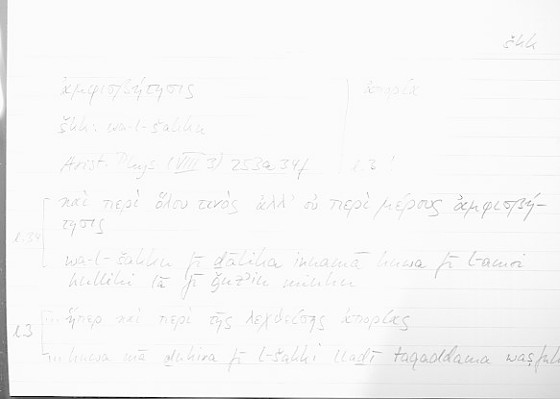 škk
ἀμφισβήτησις ἀπορία
škk: wa-l-šakku
Arist. Phys. (VIII 3) 253a34f l.3
καὶ περὶ ὅλου τινὸς ἀλλ' οὐ περὶ μέρους ἀμφισβή-
τησις
l.34 wa-l-šakku fī ḏālika innamā huwa fī l-amri
kullihi lā fī ǧuzʾin minhu
l.3 ἥπερ καὶ περὶ τῆς λεχθείσης ἀπορίας
huwa mā ḏukira fī l-šakki llaḏī taqaddama waṣfuhu